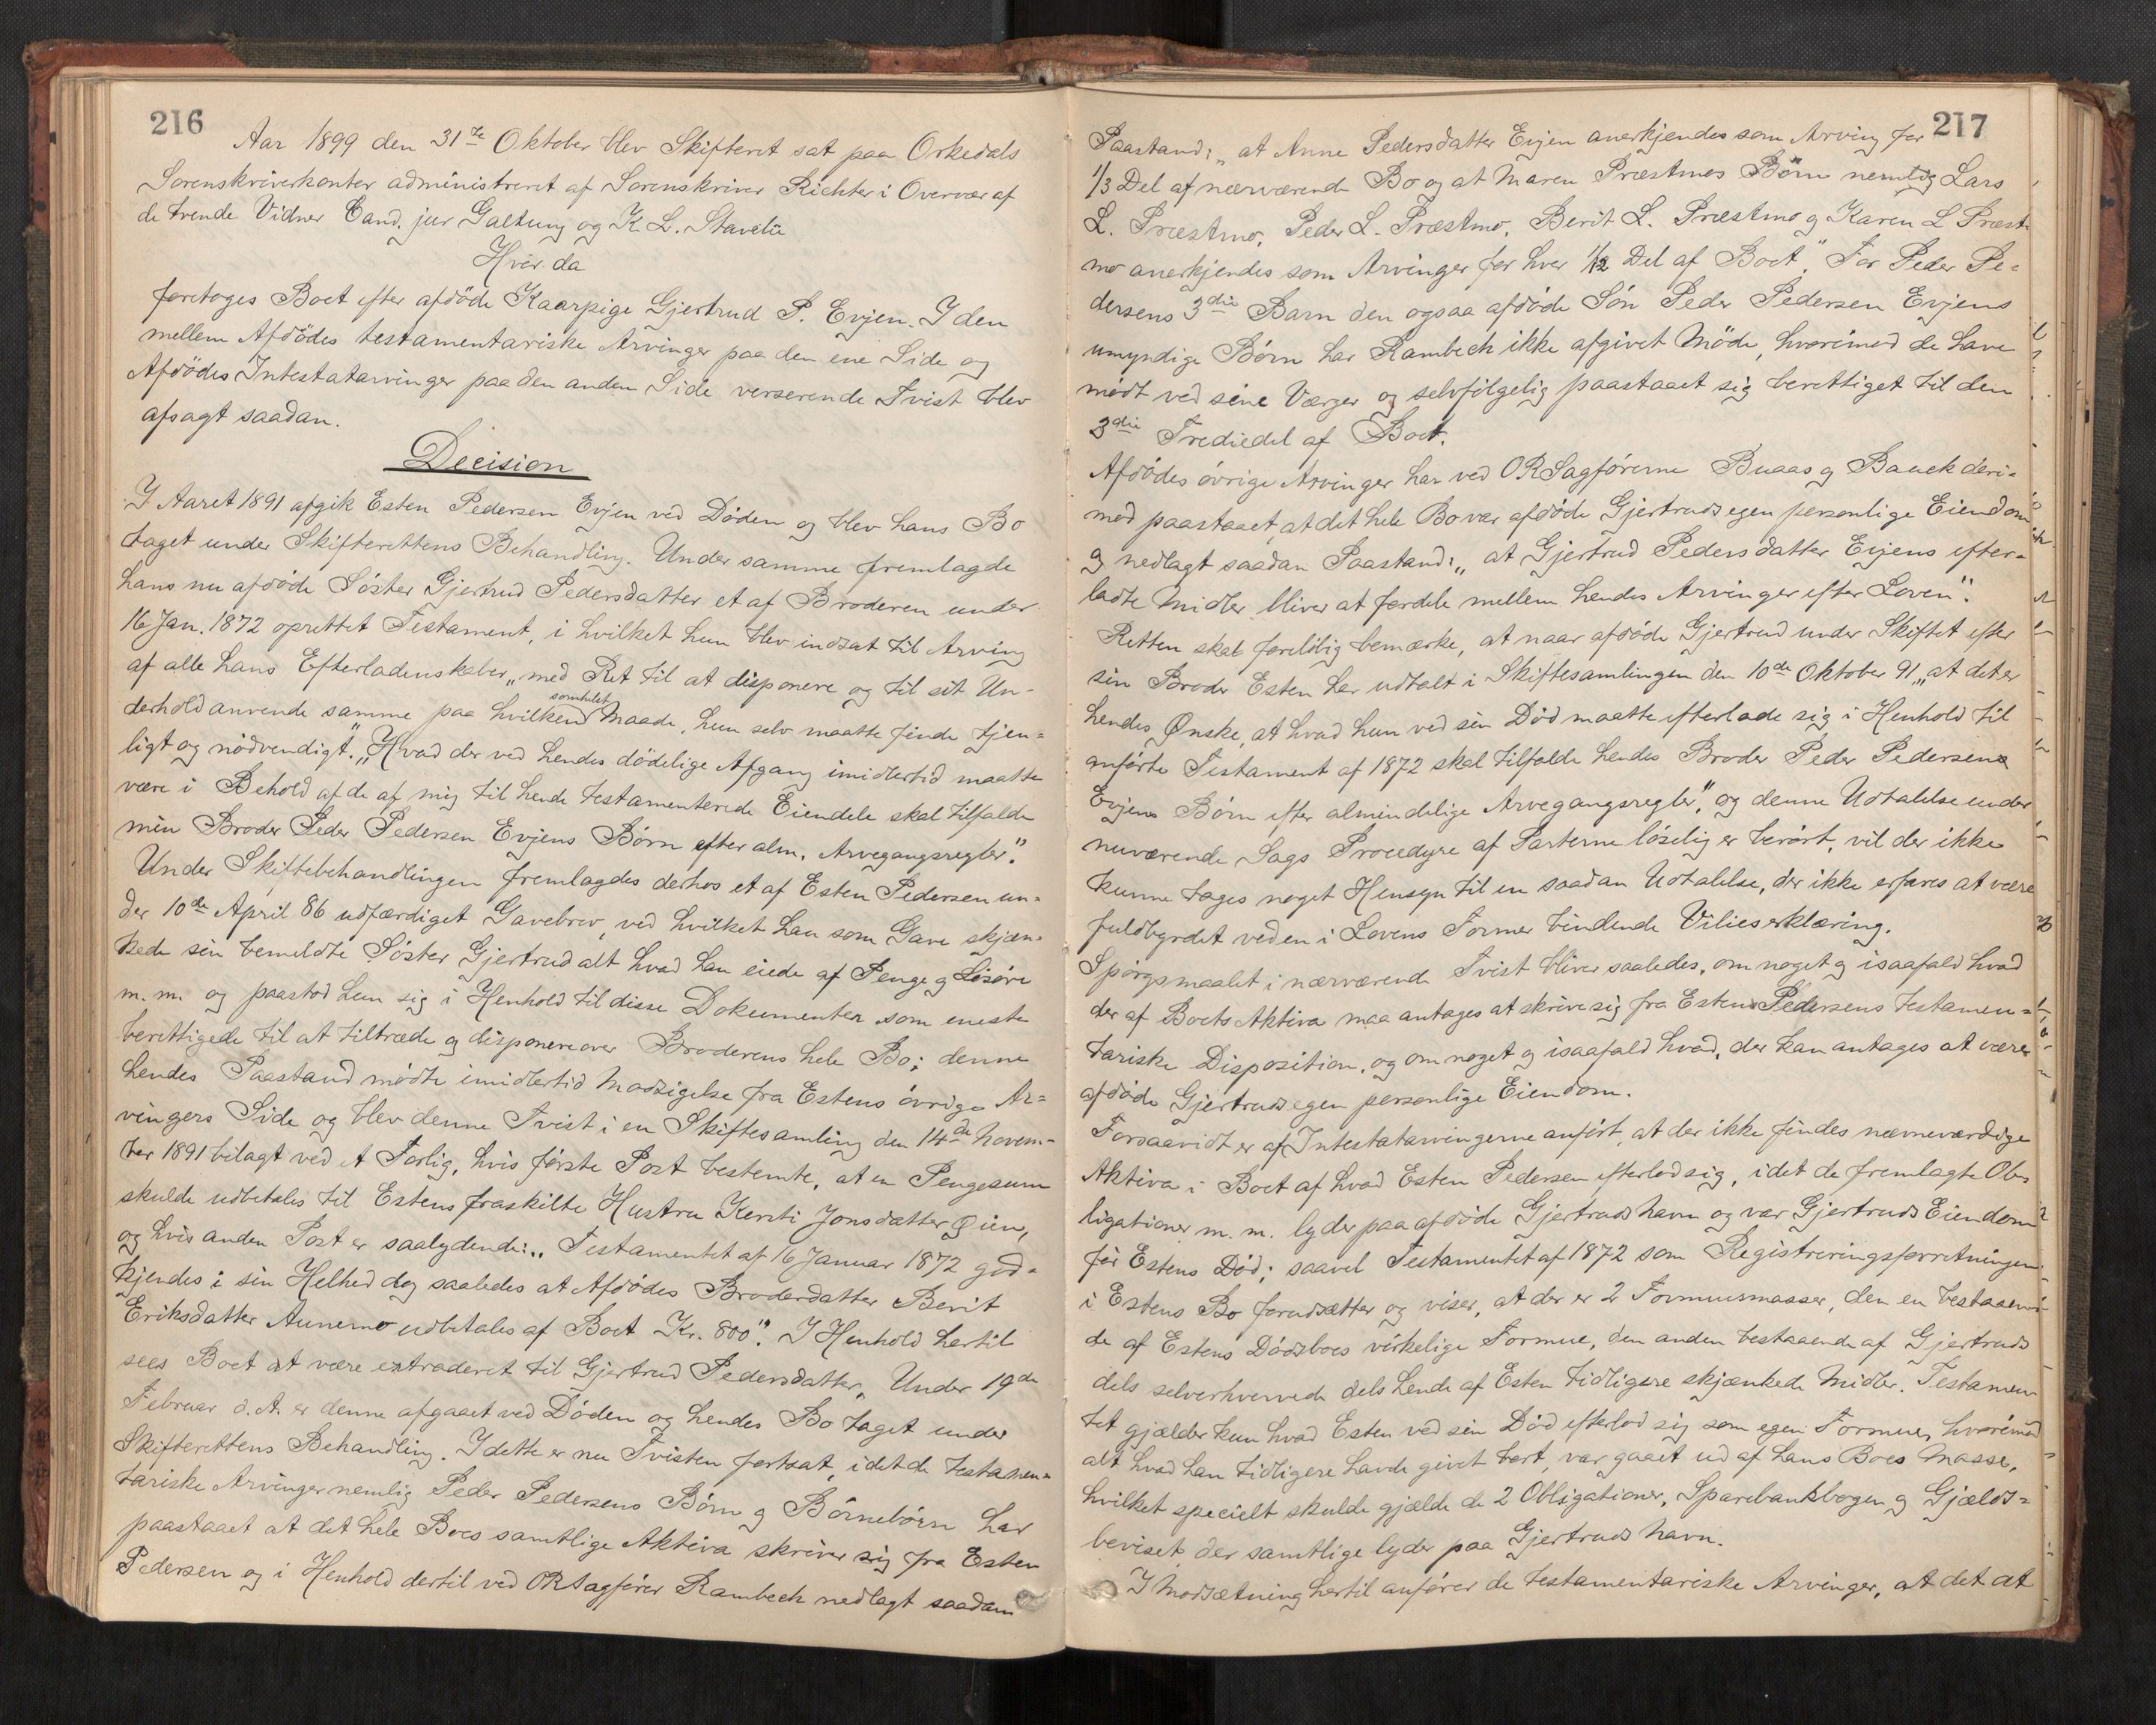 216
Aar 1899 den 31te Oktober blev Skifteret sat paa Orkedals
Sorenskriverkontor administreret af Sorenskriver Richter i Overvær af
de tvende Vidner Cand. jur Galtung og K. L. Stavelii
Hvor da
foretoges Boet efter afdöde Kaarpige Gjertrud P. Evjen. I den
mellem Afdödes testamentariske Arvinger paa den ene Side og
Afdödes Intestatarvinger paa den anden Side verserende Tvist blev
afsagt saadan.
Decision
I Aaret 1891 afgik Esten Pedersen Evjen ved Döden og blev hans Bo
taget under Skifterettens Behandling. Under samme fremlagde
hans nu afdöde Söster Gjertrud Pedersdatter et af Broderen under
16 Jan. 1872 oprettet Testament, i hvilket hun blev indsat til Arving
af alle hans Efterladenskaber „med Ret til at disponere og til sit Un-
derhold anvende samme paa hvilkensomhelst Maade, hun selv maatte finde tjen=
ligt og nödvendigt." „Hvad der ved hendes dödelige Afgang imidlertid maatte
være i Behold af de af mig til hende testamenterede Eiendele skal tilfalde
min Broder Peder Pedersen Evjens Börn efter alm. Arvegangsregler."
Under Skiftebehandlingen fremlagdes derhos et af Esten Pedersen un=
der 10de April 86 udfærdiget Gavebrev, ved hvilket han som Gave skjæn=
kede sin bemeldte Söster Gjertrud alt hvad han eiede af Penge og Lösöre
m. m. og paastod hun sig i Henhold til disse Dokumenter som eneste
berettigede til at tiltræde og disponere over Broderens hele Bo; denne
hendes Paastand mödte imidlertid Modsigelse fra Estens övrige Ar=
vingers Side og blev denne Tvist i en Skiftesamling den 14de Novem=
ber 1891 bilagt ved et Forlig, hvis förste Post bestemte, at en Pengesum
skulde udbetales til Estens fraskilte Hustru Kersti Jonsdatter Øien,
og hvis anden Post er saalydende: „Testamentet af 16 Januar 1872 god=
kjendes i sin Helhed dog saaledes at Afdödes Broderdatter Berit
Eriksdatter Aunemo udbetales af Boet Kr. 800". I Henhold hertil
sees Boet at være extraderet til Gjertrud Pedersdatter. Under 19de
Februar d. A. er denne afgaaet ved Döden og hendes Bo taget under
Skifterettens Behandling. I dette er nu Tvisten fortsat, idet de testamen=
tariske Arvinger nemlig Peder Pedersens Börn og Börnebörn har
paastaaet at det hele Boes samtlige Aktiva skriver sig fra Esten
Pedersen og i Henhold dertil ved ORSagförer Rambech nedlagt saadan
217
Paastand: „at Anne Pedersdatter Evjen anerkjendes som Arving for
1/3 Del af nærværende Bo og at Maren Præstmos Börn nemlig Lars
L. Præstmo, Peder L. Præstmo, Berit L. Præstmo og Karen L Præst-
mo anerkjendes som Arvinger for hver 1/12 Del af Boet". For Peder Pe=
dersens 3die Barn den ogsaa afdöde Sön Peder Pedersen Evjens
umyndige Börn har Rambech ikke afgivet Möde, hvorimod de have
mödt ved sine Værger og selvfölgelig paastaaet sig berettiget til den
3die Trediedel af Boet.
Afdödes övrige Arvinger har ved ORSagförerne Buaas og Bauck deri-
mod paastaaet, at det hele Bo var afdöde Gjertruds egen personlige Eiendom
og nedlagt saadan Paastand: „at Gjertrud Pedersdatter Evjens efter=
ladte Midler bliver at fordele mellem hendes Arvinger efter Loven".
Retten skal foreløbig bemærke, at naar afdöde Gjertrud under Skiftet efter
sin Broder Esten har udtalt i Skiftesamlingen den 10de Oktober 91 „at det er
hendes Ønske, at hvad hun ved sin Död maatte efterlade sig i Henhold til
anförte Testament af 1872 skal tilfalde hendes Broder Peder Pedersens
Evjens Börn efter almindelige Arvegangsregler", og denne Udtalelse under
nuværende Sags Procedyre af Parterne löselig er berört, vil der ikke
kunne tages noget Hensyn til en saadan Udtalelse, der ikke erfares at være
fuldbyrdet ved en i Lovens Former bindende Viliesserklæring.
Spörgsmaalet i nærværende Tvist bliver saaledes, om noget og isaafald hvad
der af Boets Aktiva maa antages at skrive sig fra Esten Pedersens testamen=
tariske Disposition, og om noget og isaafald hvad, der kan antages at være
afdöde Gjertruds egen personlige Eiendom.
Forsaavidt er af Intestatarvingerne anfört, at der ikke findes nævneværdige
Aktiva i Boet af hvad Esten Pedersen efterlod sig, idet de fremlagte Ob-
ligationer m. m. lyder paa afdöde Gjertruds Navn og var Gjertruds Eiendom
för Estens Död; saavel Testamentet af 1872 som Registreringsforretningen
i Estens Bo forudsætter og viser, at der er 2 Formuesmasser, den en bestaaen-
de af Estens Dödsboes virkelige Formue, den anden bestaaende af Gjertruds
dels selverhvervede dels hende af Esten tidligere skjænkede Midler. Testamen
tet gjælder kun hvad Esten ved sin Död efterlod sig som egen Formue, hvorimod
alt hvad han tidligere havde givet bort, var gaaet ud af hans Boes Masse,
hvilket specielt skulde gjælde de 2 Obligationer, Sparebankbogen og Gjælds=
beviset, der samtlige lyder paa Gjertruds Navn.
I Modsætning hertil anförer de testamentariske Arvinger, at det at